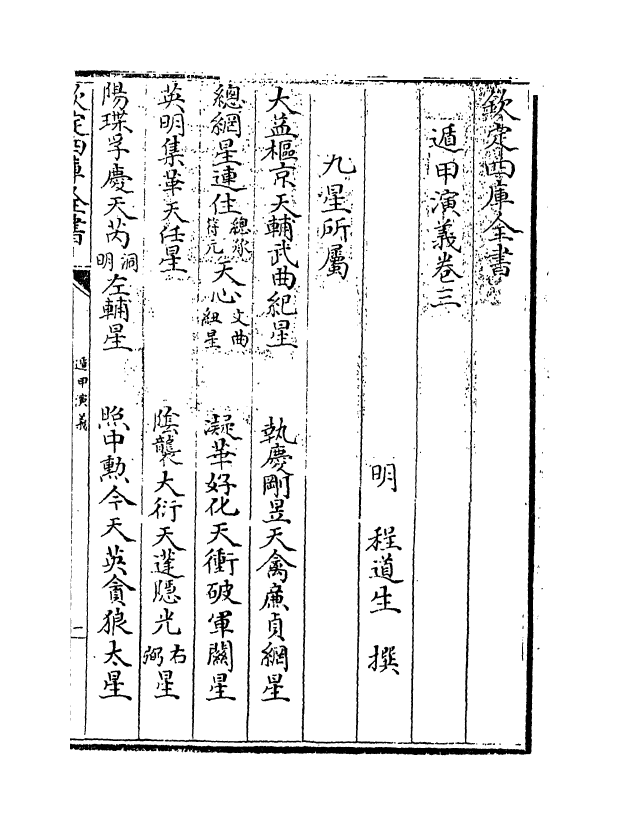 欽定四庫全書
遁甲演義卷三
明 程道生 撰
九星所屬
大益樞京天輔武曲紀星 執慶剛昱天禽廉貞綱星
總網星連住總錄符元天心文曲紐星 凝華好化天衝破軍關星
英明集華天任星 陰襲大衍天蓬隱光右弼星
陽璞孚慶天芮洞明左輔星 照中勲令天英貪狼太星
欽定四庫全書
遁甲演義